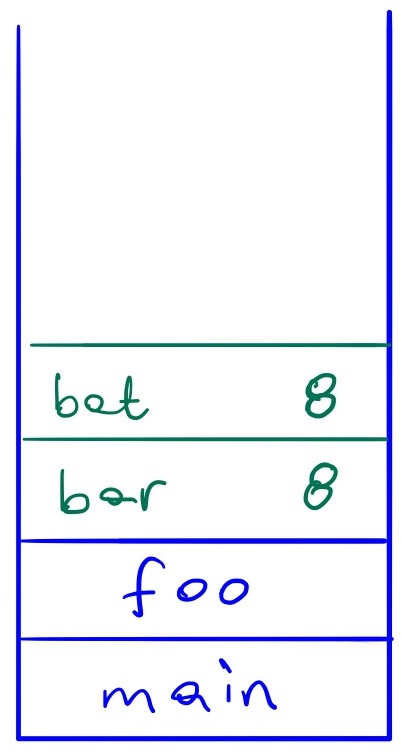 bat 8
bar 8
foo
main